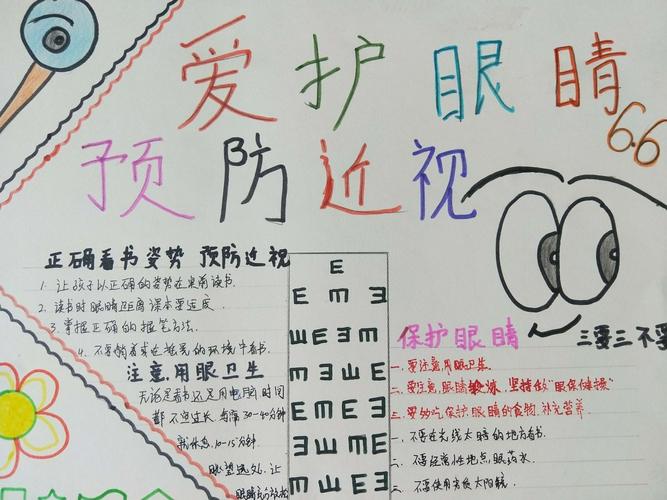 爱护眼睛
6.6
预防近视
正确看书姿势 预防近视
1. 让孩子以正确的姿势在桌前读书.
2. 读书时眼睛距离课本要适度
3. 掌握正确的握笔方法.
4. 不要躺着或在摇晃的环境中看书.
注意用眼卫生
无论是看书还是用电脑时间
都不宜过长，每隔30-40分钟
就休息10-15分钟.
眺望远处，让
眼睛充分放松
E
E m Ǝ
ш E Ǝ m
m Ǝ ш E
E m E Ǝ
Ǝ ш m E
m ш E Ǝ
保护眼睛 三要三不要
一. 要注意用眼卫生.
二. 要注意眼睛 坚持做"眼保健操"
三. 要多吃保护眼睛的食物.补充营养.
一. 不要在光线太暗的地方看书.
二. 不要经常性地点眼药水.
三. 不要使用劣质太阳镜.